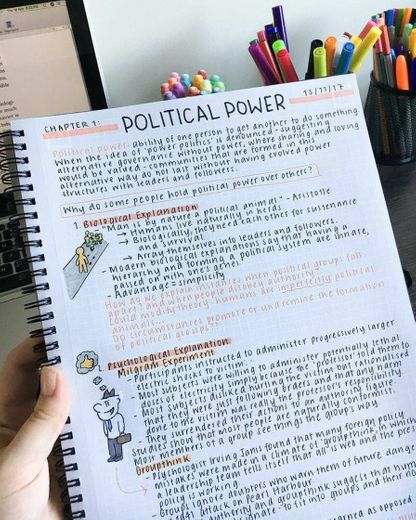 CHAPTER 1: POLITICAL POWER 13/11/17
Political power: ability of one person to get another to do something
When the idea of "power politics" is denounced - suggesting
alternative governance without power, where sharing and loving
would be valued - communities that are formed in this
alternative way do not last without having evolved power
structures with leaders and followers.
Why do some people hold political power over others?
1. Biological Explanation
- "Man is by nature a political animal" - Aristotle
→ Humans live naturally in herds
→ Biologically, they need each other for sustenance
and survival.
→ Array themselves into leaders and followers.
- Modern biological explanations say that having a
hierarchy and forming a political system are innate,
passed on with one's genes.
- Advantage = simplicity
How do we explain instances when political groups fall
apart? and when people disobey authority?
Could modify theory: humans are imperfectly political
animals.
Do circumstances promote or undermine the formation
of political groups??
Psychological Explanation
Milgram Experiment
- Participants instructed to administer progressively larger
electric shocks to victim.
- Most subjects were willing to administer potentially lethal
dose of electricity simply because the "professor" told them to
- Most subjects disliked hurting the victim but rationalised
that they were just following orders, that any harm
done to the victim was really the professor's responsibility.
- They surrendered their actions to an authority figure
- Studies show that most people are naturally conformist.
Most members of a group see things the group's way.
Groupthink
- Psychologist Irving Janis found that many foreign policy
mistakes were made in a climate of 'groupthink', in which
a leadership team tells itself that all is well and the present
policy is working.
- Groups ignore doubters who warn them of future danger
attack on Pearl Harbour
and groupthink suggest that humans
to fit into groups and their
as opposed